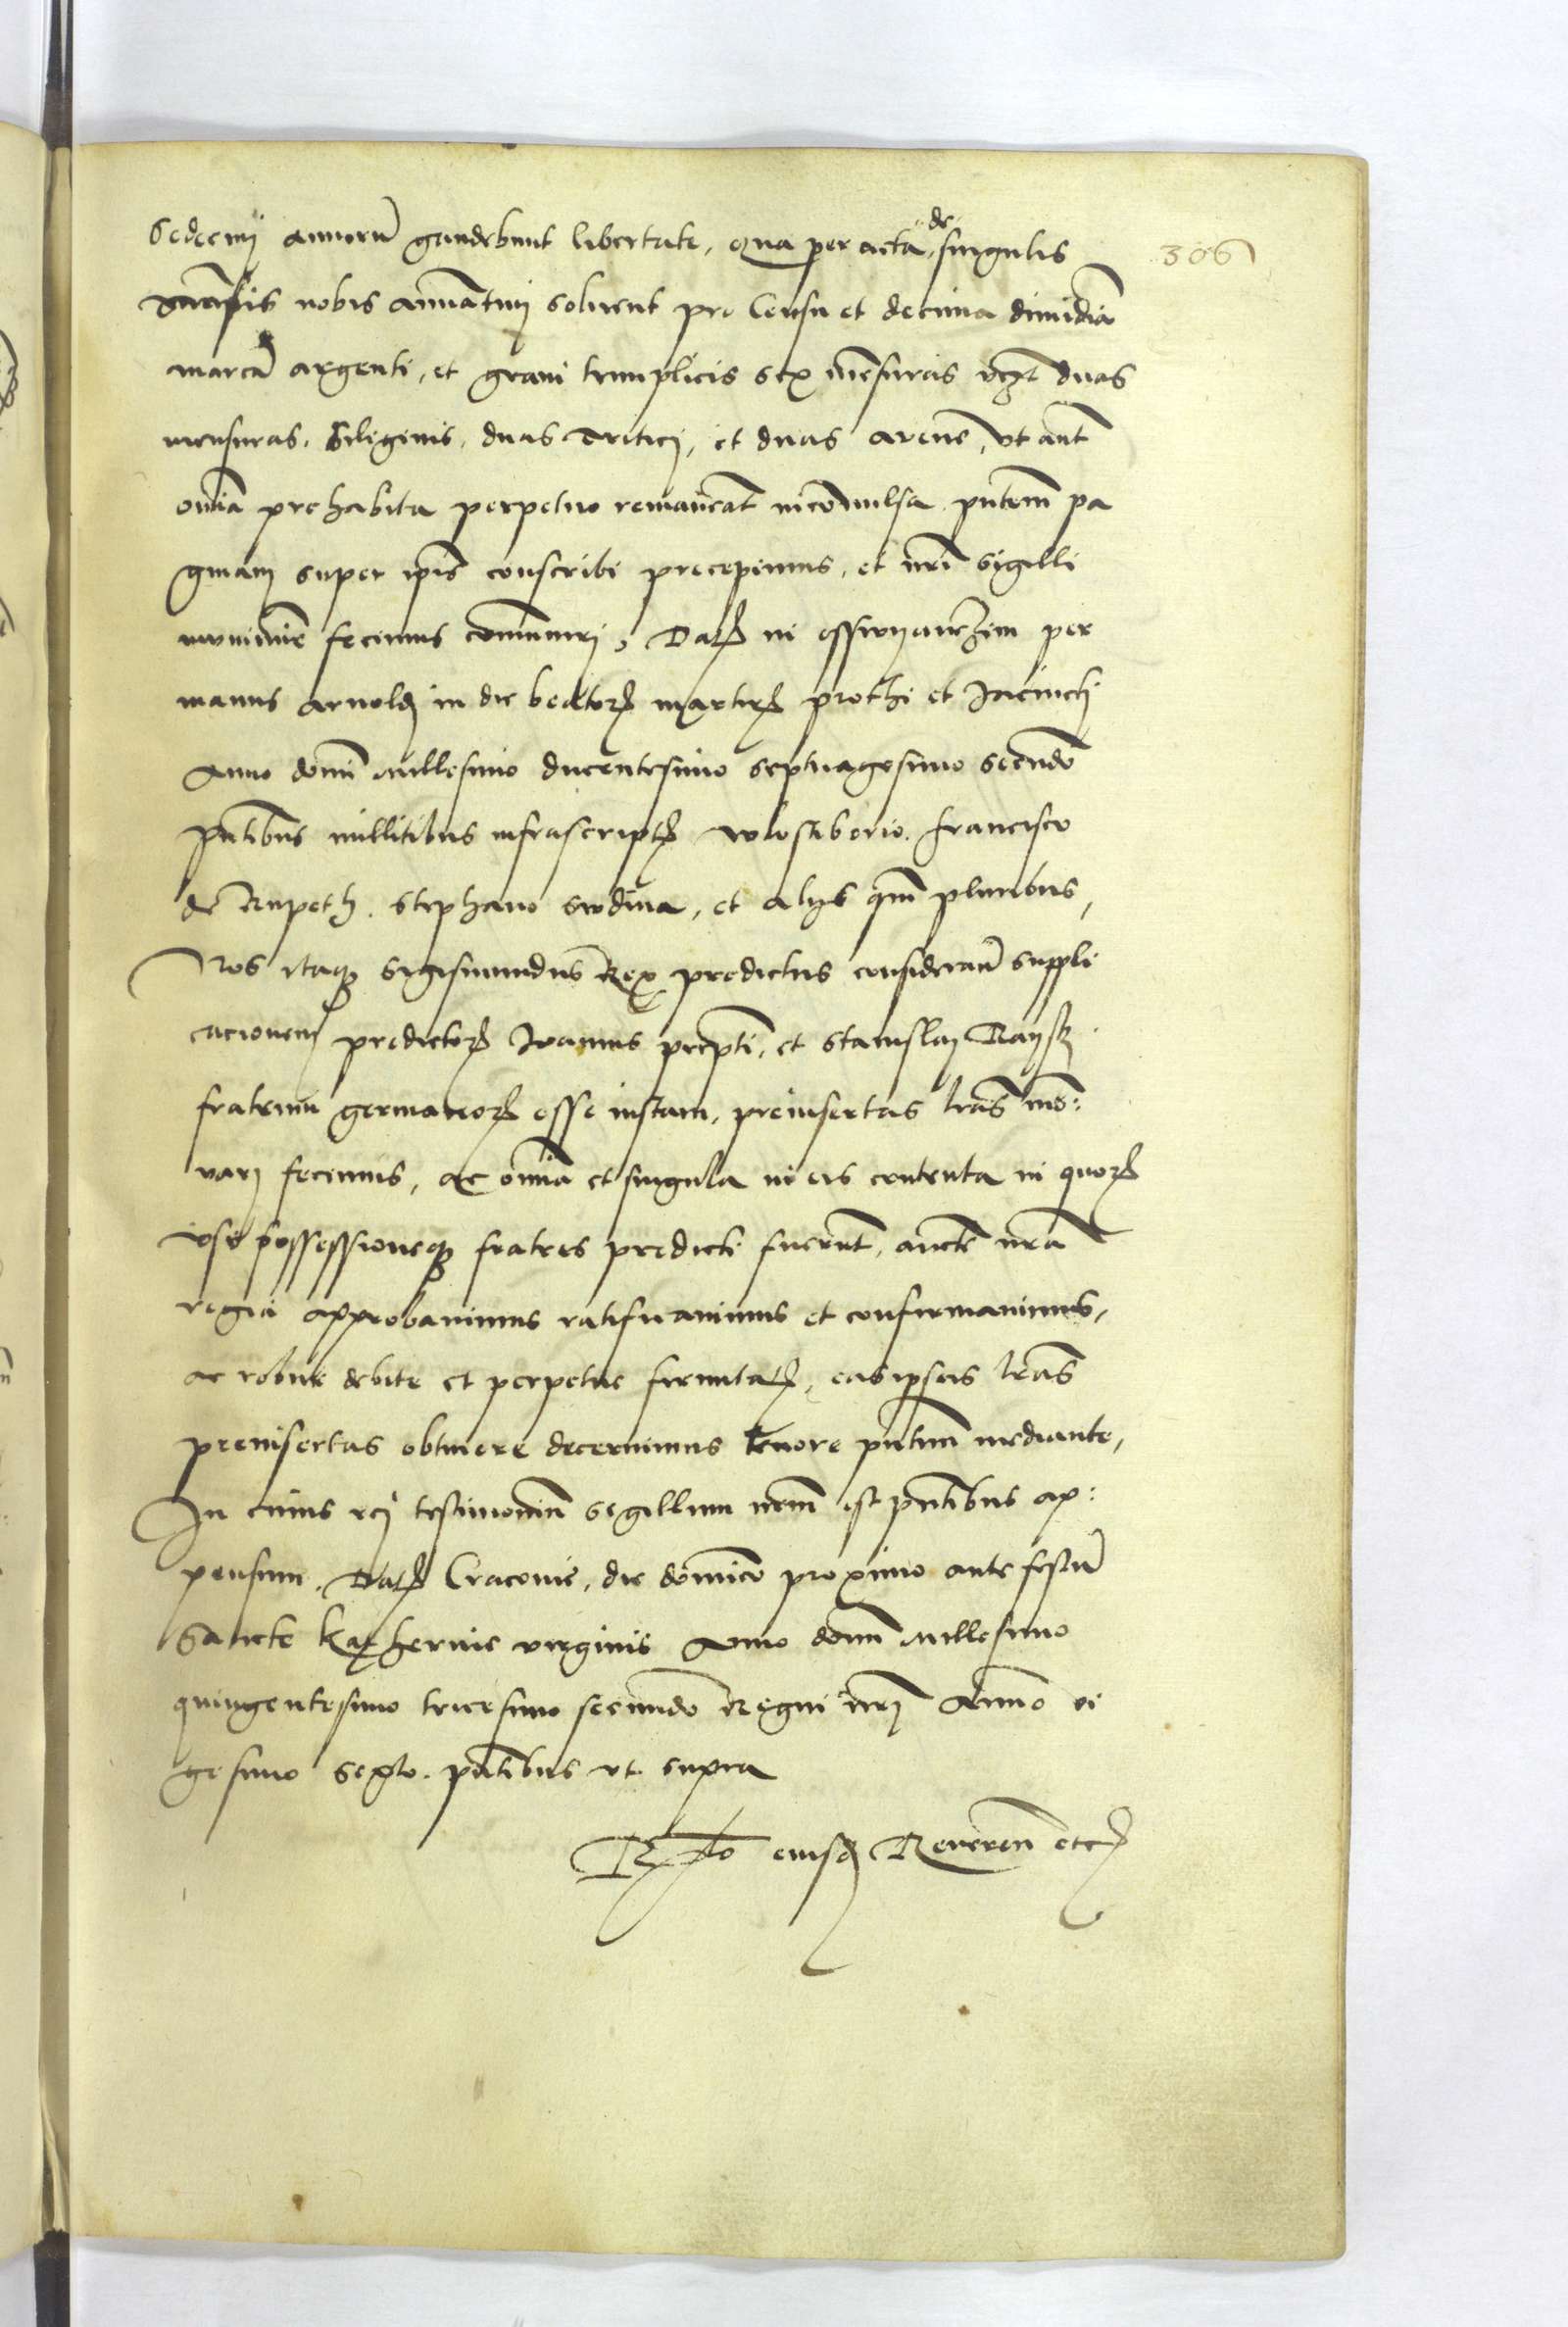 306
sedecim annorum gaudebunt libertate, qua per acta de singulis
mansis nobis annuatim soluent pro Censu et decima dimidiã
marcã argenti, et grani trimplicis sex mẽsuras vcZt duas
mensuras Siligenis, duas tritici, et duas auene, vt aut
om̃ia prehabita perpetuo remaneãt inconuulsa pñtem pa
ginam super ip̃is conscribi precepimus, et nr̃i sigilli
munimĩe fecimus com̃uniri, Datꝝ in osswyanczim per
manus arnoldj in die beatorꝝ martirꝝ prothi et Jacincti
Anno domĩ millesimo ducentesimo septuagesimo secundo
Pñtibus millitibus infrascriptꝝ wlostiborio. Francisco
de Rupeth. Stephano swdina, et alijs qm̃ pluribus,
Nos itaqꝫ Sigismundus Rex predictus considerañ suppli
cacionem predictorꝝ Joannis prep̃ti, et Stanislaj Raysky
fratrum germanorꝝ esse iustam, preinsertas lr̃as inno:
uari fecimus, ac om̃ia et singula in eis contenta in quorꝝ
vsu possessioneqꝫ fratres predicti fuerũt, aucte nr̃a
regia approbauimus ratificauimus et confirmauimus,
ac robur debite et perpetue firmitatꝝ, eas ipsas lr̃as
preinsertas obtinere decernimus tenore pñtium mediante,
In cuius rei testimoniũ sigillum nr̃m est pñtibus ap:
pensum. Datꝝ Cracouie, die dominico proximo ante festũ
Sancte Katherine virginis Anno domĩ millesimo
quingentesimo tricesimo secundo Regni nr̃j Anno vi
gesimo sexto. pñtibus vt supra
Rel̃o eiusdꝫ Reuereñ etcꝝ